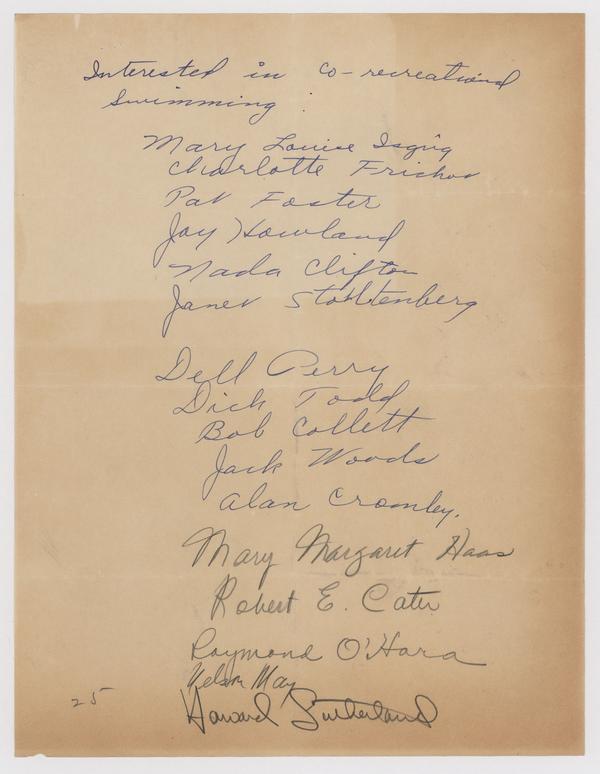 Interested in co-recreational
swimming :
Mary Louise
Charlotte
Pat Foster
Joy Howland
Nada Clifton
Janet Stohltenberg
Dell Perry
Dick Todd
Bob Collett
Jack Woods
Alan Cromley.
Mary Margaret Haas
Robert E. Cater
Raymond O'Hara
Nelson May
Howard Sutherland
25